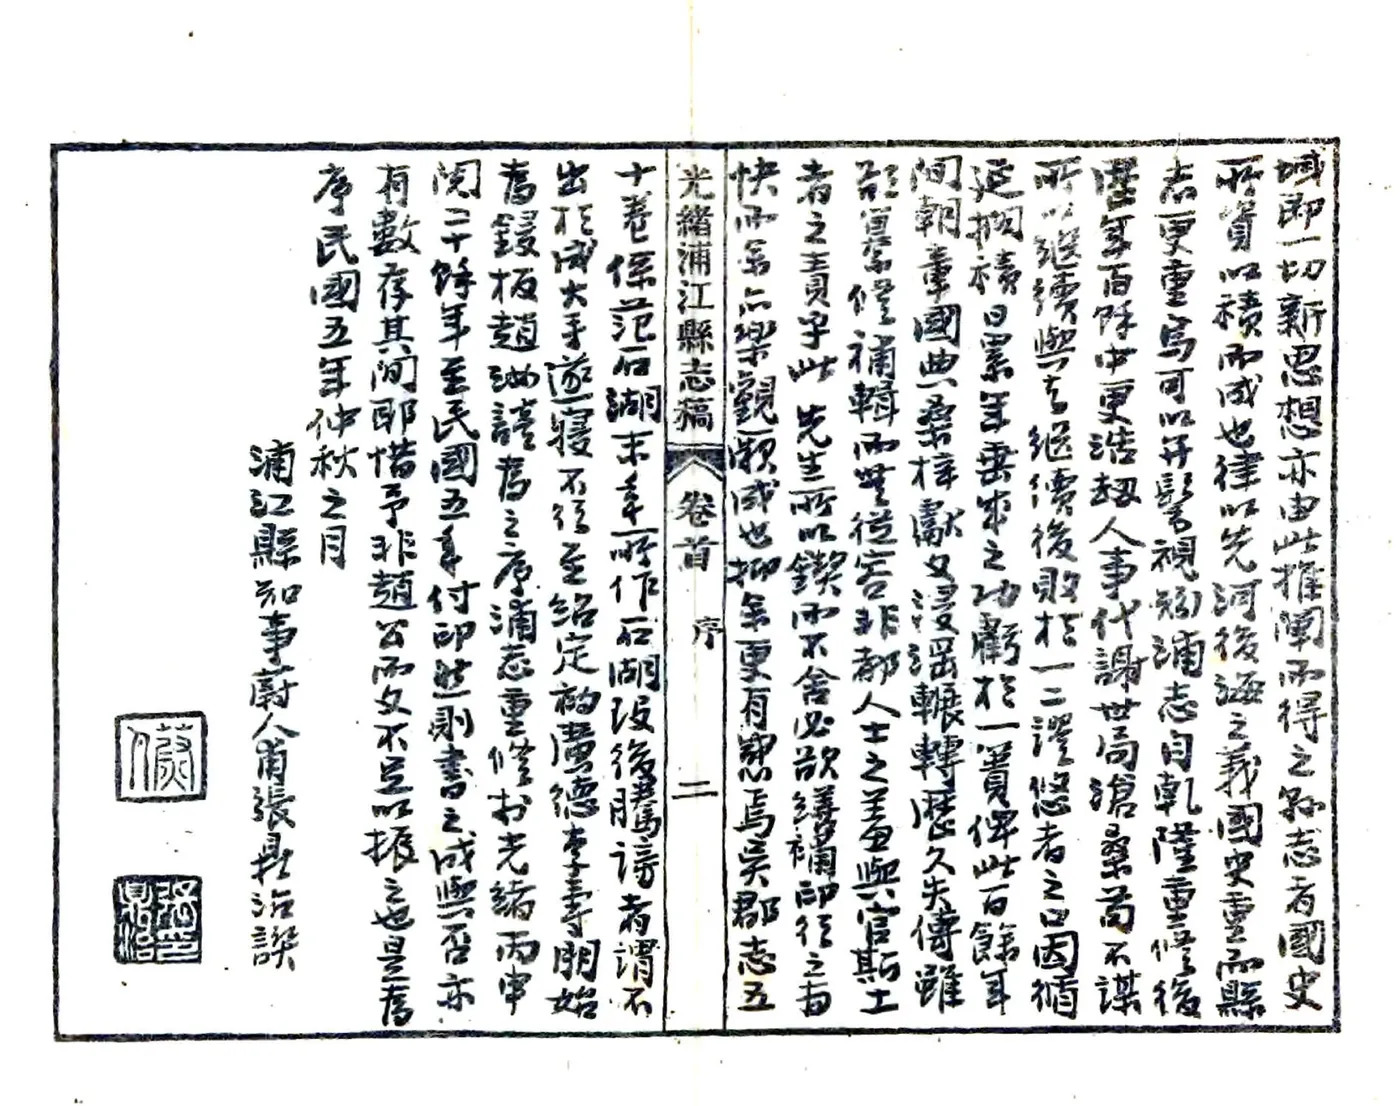 域即一切新思想亦由此推闡而得之孫志者國史
所資以積而成也律以先河後海之義國史重而縣
志更重焉可以弁髦視夠浦志自乾隆重修後
歷年百餘中更浩劫人事代謝世局滄桑苟不謀
所以繼續與志繼續後敗於一二謬悠者之口因循
延擱積日累年垂成之功虧於一簣俾此百餘年
間朝章國典桑梓獻文浸淫輾轉歷久失傳雖
欲纂修補輯而無從容非都人士之羞與官斯土
者之責乎此先生所以鍥而不舍必欲繕補印行之為
快而余亦樂觀厥成也抑余更有慨焉吳郡志五
光緒浦江縣志稿 卷首 序 二
十卷係范石湖末年所作石湖歿後騰謗者謂不
出於成大手遂寢不行至紹定初廣德李壽朋始
為鋟板趙汝談為之序浦志重修於光緒丙申
閱二十餘年至民國五年付印然則書之成與否亦
有數存其間耶惜予非趙公而文不足以振之也是為
序民國五年仲秋之月
浦江縣知事蔚人甫張鼎治譔